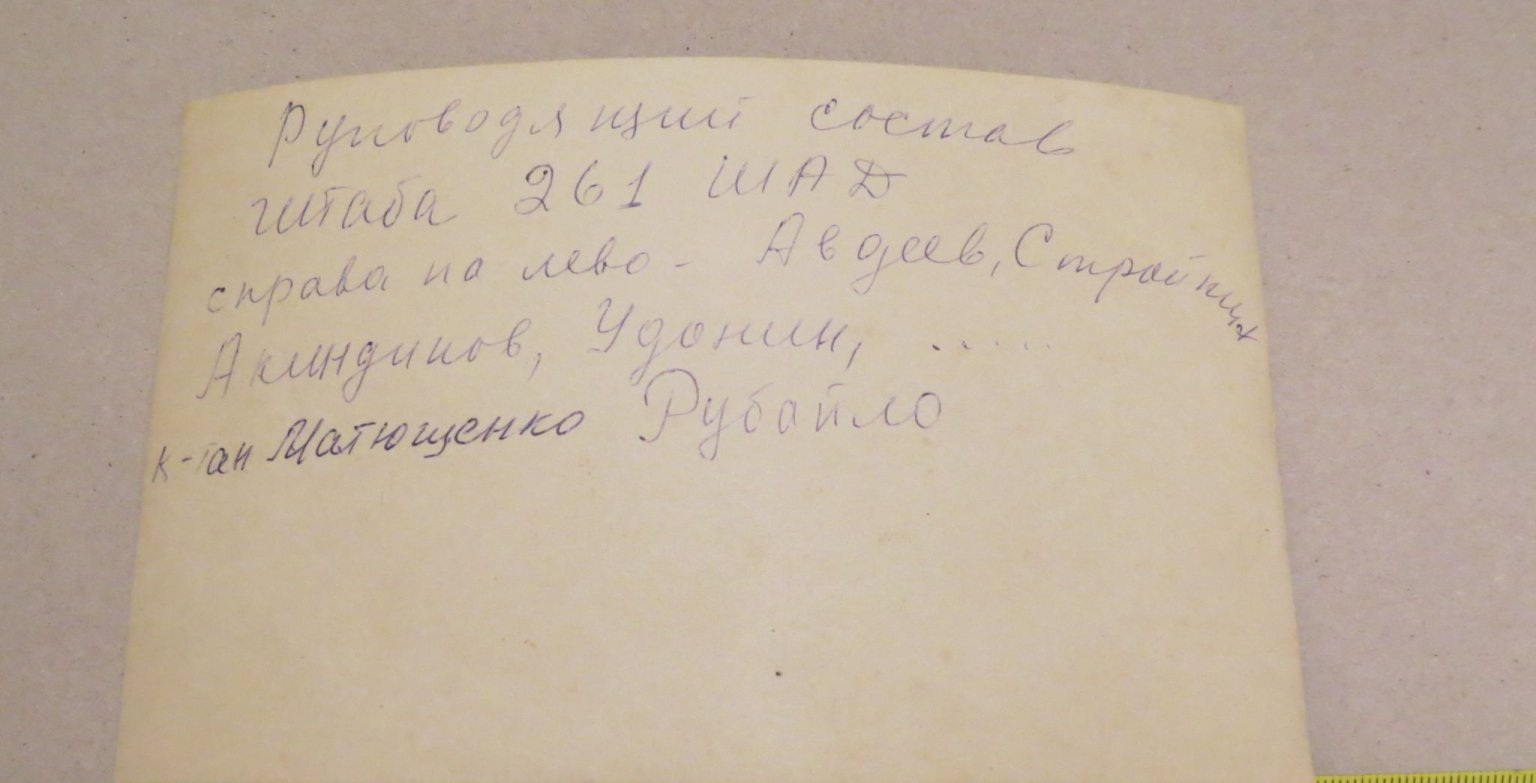 Руководящий состав
штаба 261 ШАД
справа на лево - Авдеев,
Акиндинов, Удонин, .....
к-тан Матющенко Рубайло